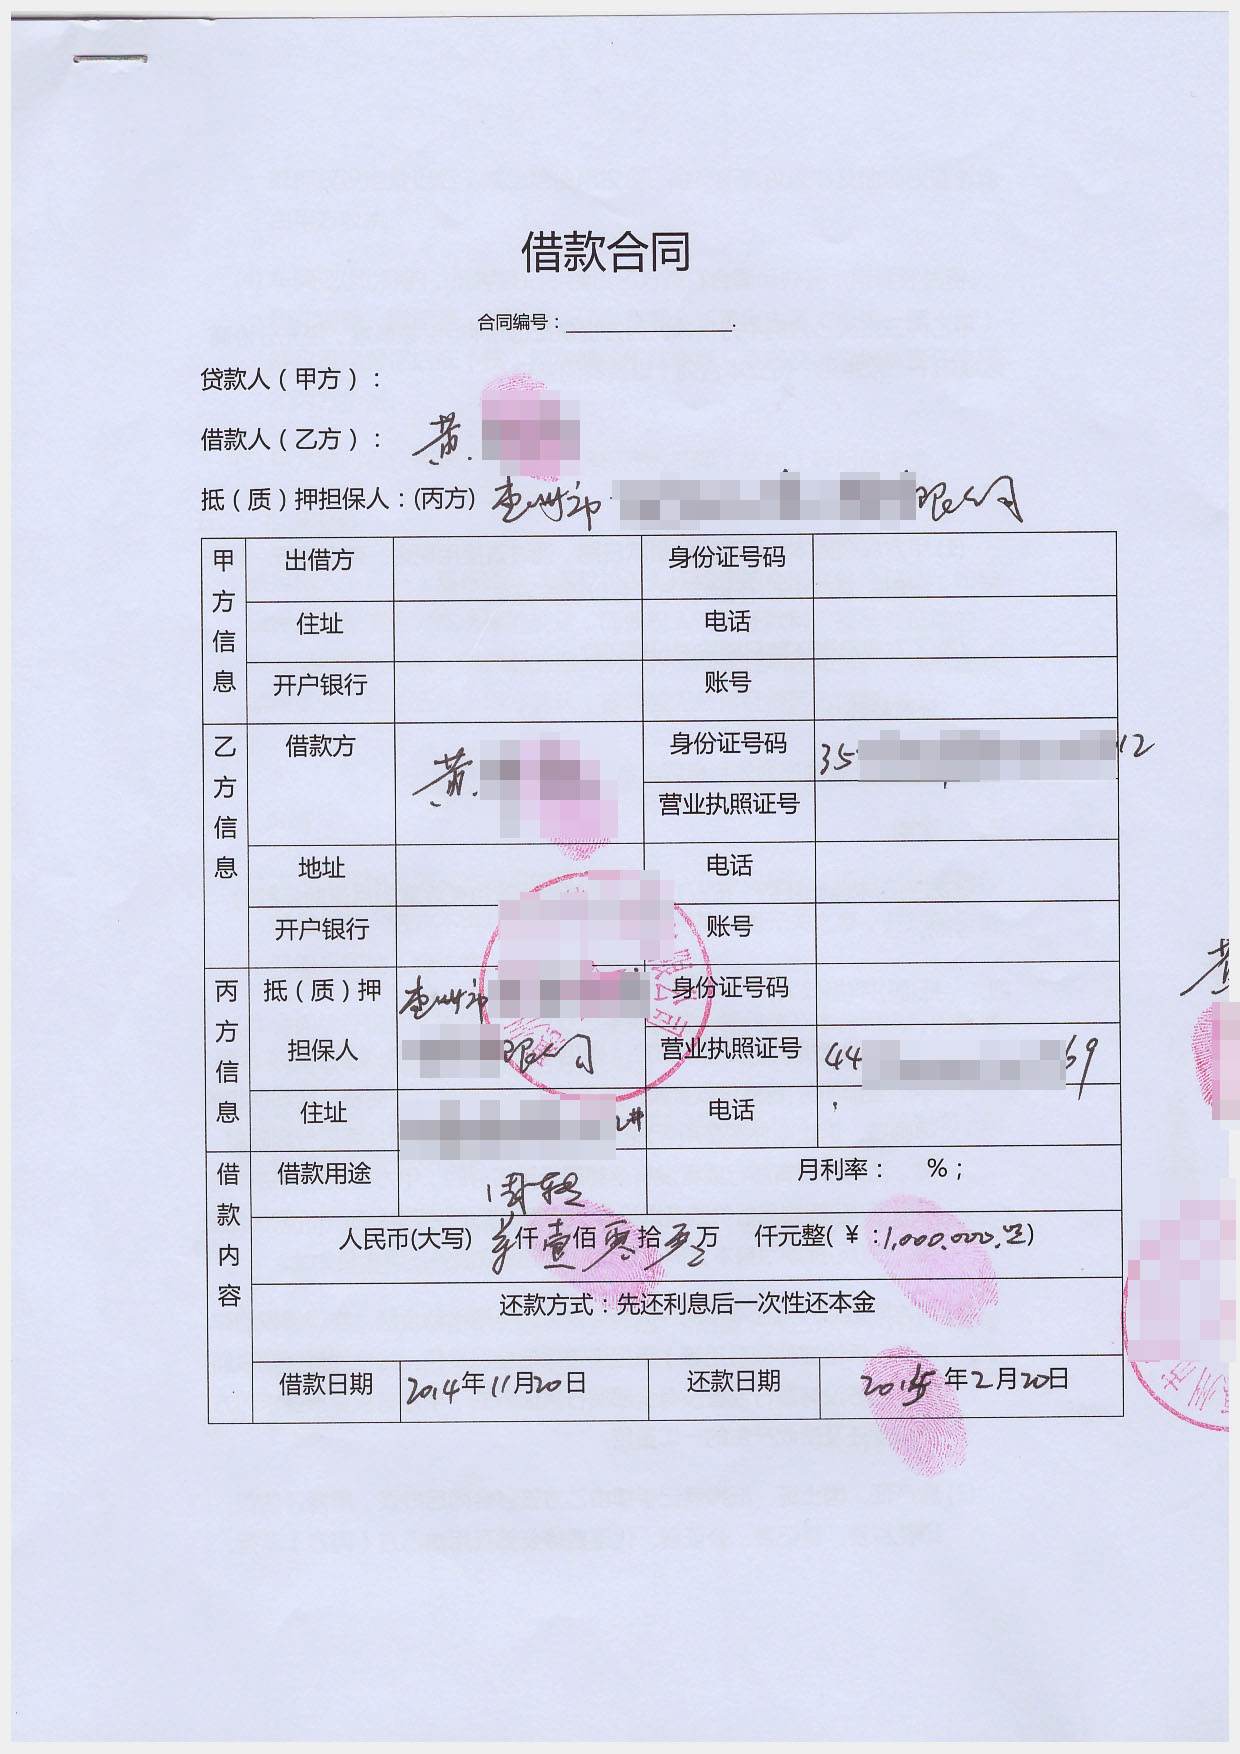 借款合同
合同编号：
贷款人（甲方）：
借款人（乙方）： 黄
抵（质）押担保人：(丙方) 惠州市 限公司
甲方信息
出借方 身份证号码
住址 电话
开户银行 账号
乙方信息
借款方 黄 身份证号码 35 12
营业执照证号
地址 电话
开户银行 账号
丙方信息
抵（质）押担保人 惠州市 限公司 身份证号码
营业执照证号 44 69
住址 2# 电话
借款内容
借款用途 周转 月利率： %；
人民币(大写) 仟壹佰零拾 万 仟元整(￥:1,000,000.)
还款方式：先还利息后一次性还本金
借款日期 2014年11月20日 还款日期 2015年2月20日
黄
限公司